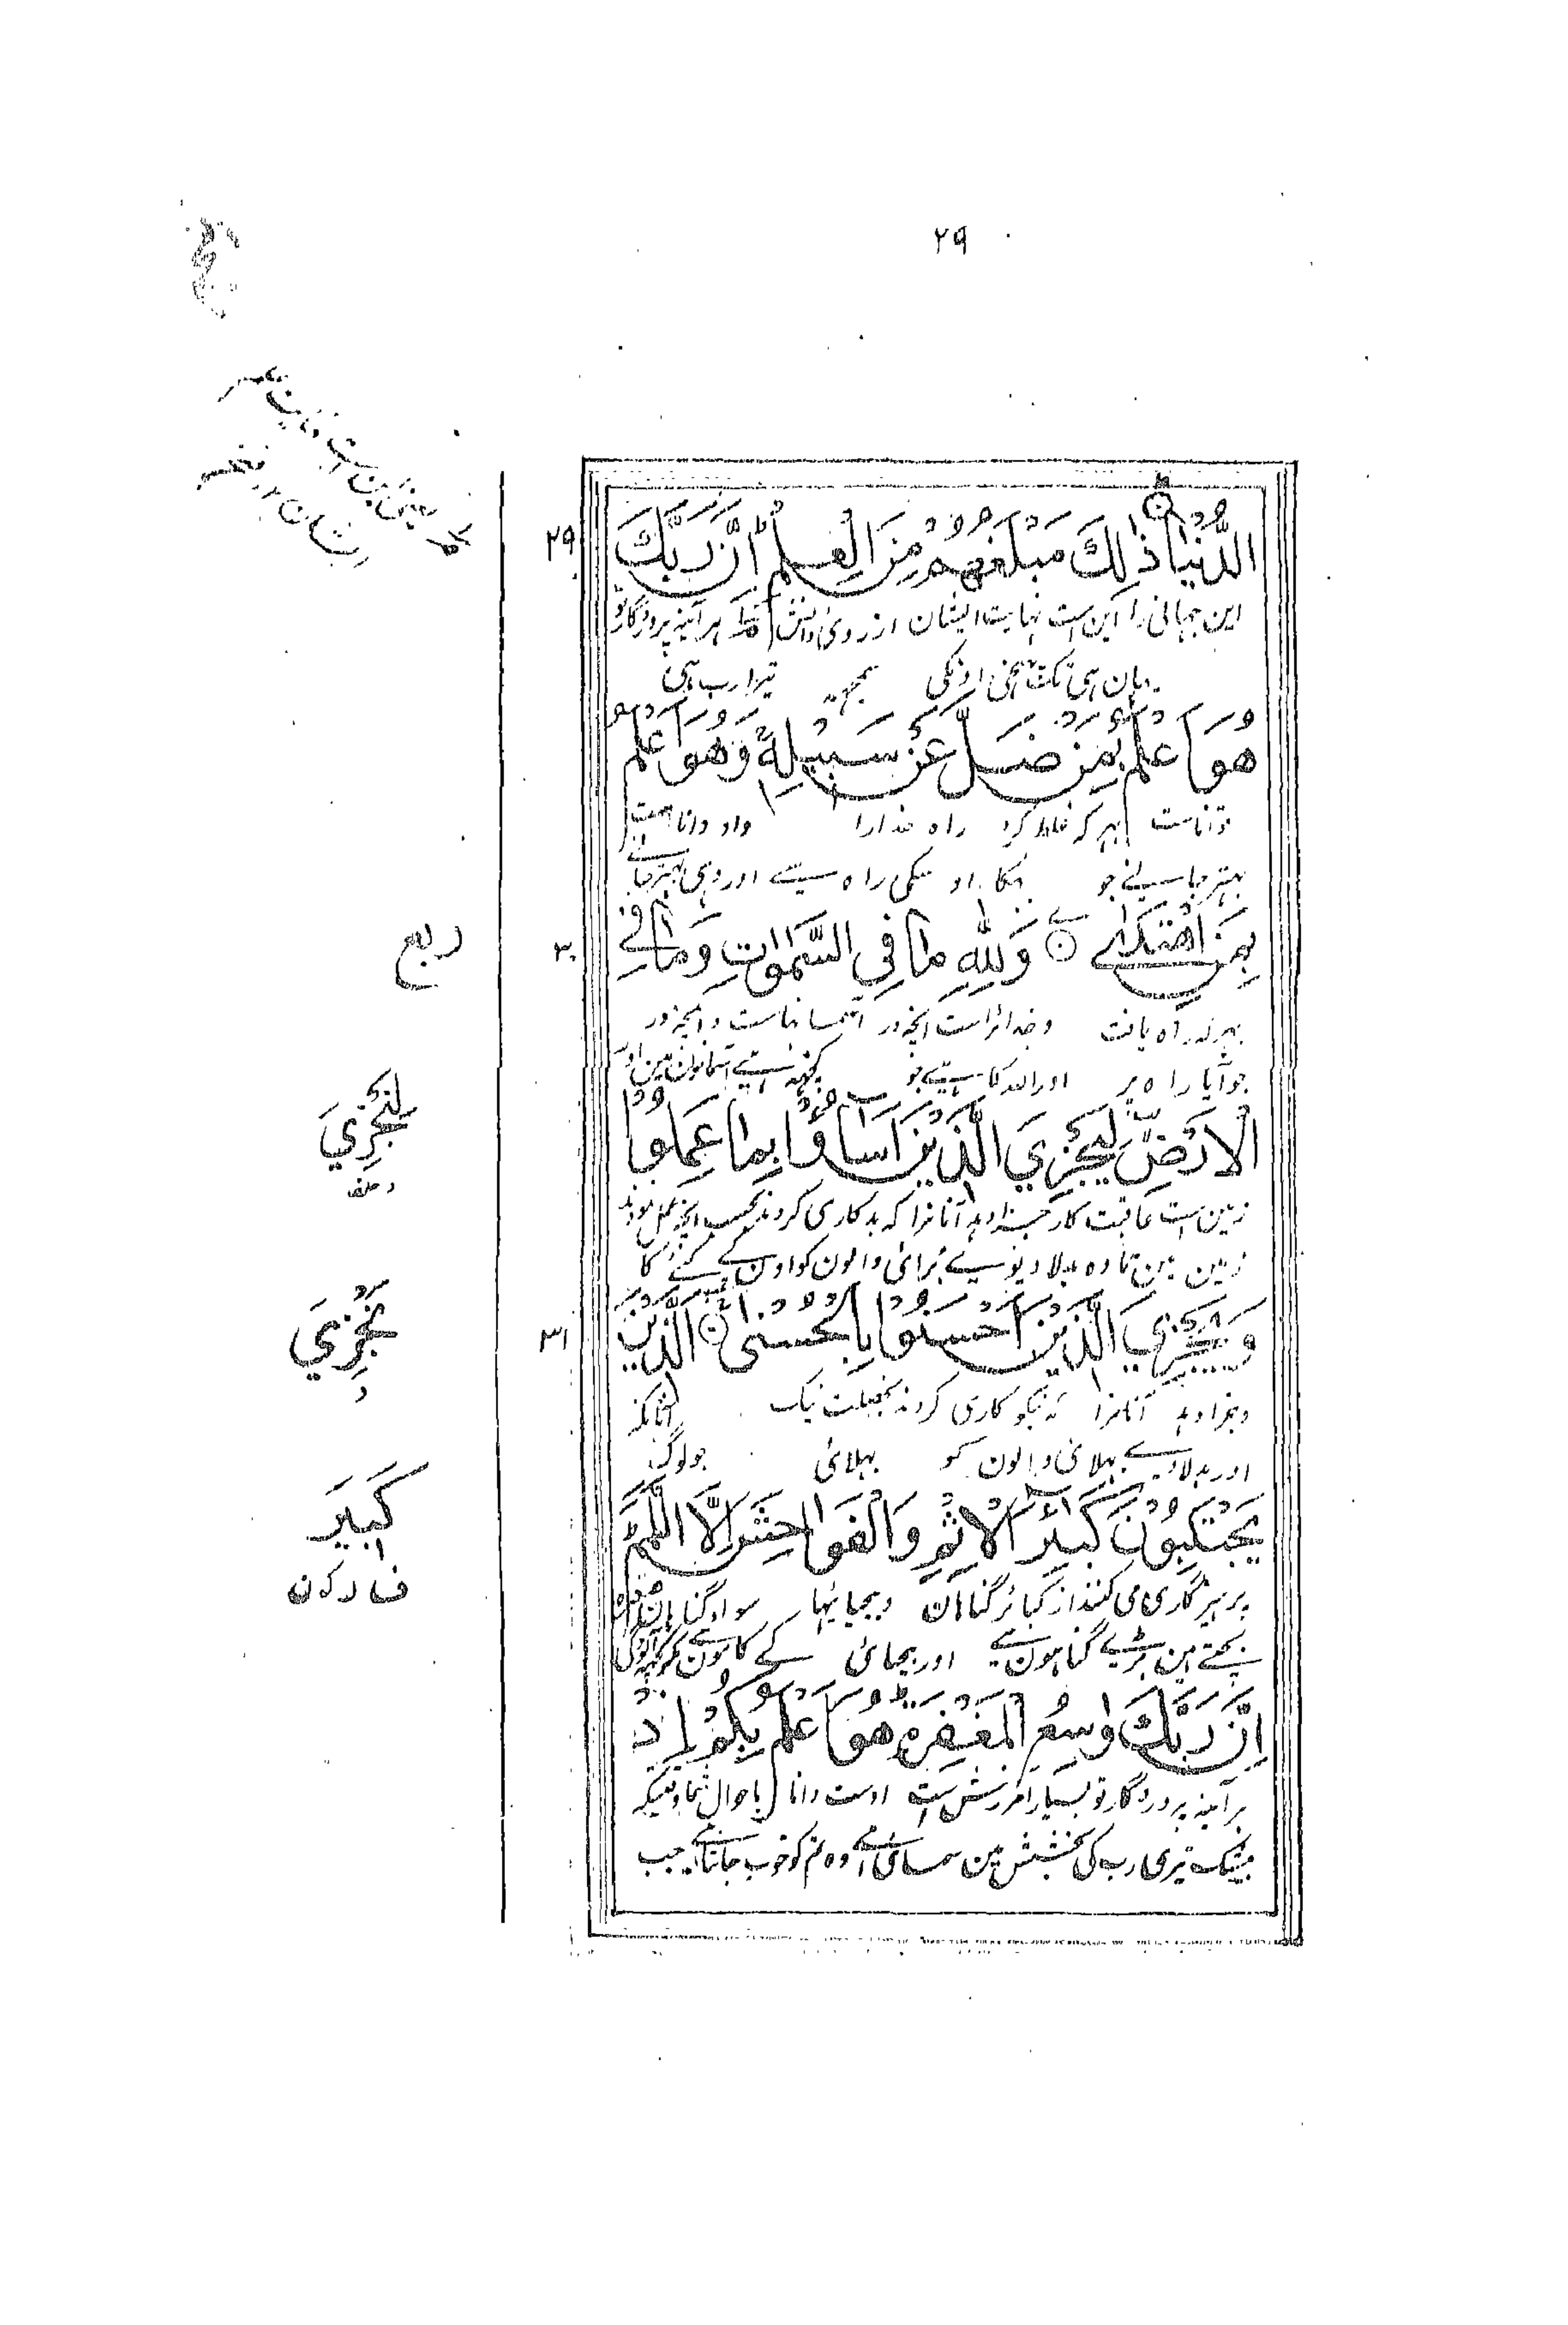 ٢٩
الدُّنْيَا ذٰلِكَ مَبْلَغُهُمْ مِنَ الْعِلْمِ إِنَّ رَبَّكَ
٢٩
این جهانی را این است نهایت ایشان از روی دانش هر آئینه پروردگار تو
یہان ہی تک سمجھہ تیرا رب ہی
هُوَ أَعْلَمُ بِمَنْ ضَلَّ عَنْ سَبِيْلِهٖ وَهُوَ أَعْلَمُ
داناست بہر کہ غلط کرد راہ خدا را و او داناست
بہتر جانے جو بہکا او سکی راہ سے اور وہی بہتر جانے
بِمَنِ اهْتَدٰى وَلِلّٰهِ مَا فِي السَّمٰوٰتِ وَمَا فِي
٣٠
ربع
راہ یافت و خدا را است آنچہ در آسمانهاست و آنچہ در
جو آیا راہ پر اور اللہ کا ہے جو کچھہ ہے آسمانون مین اور
الْاَرْضِ لِيَجْزِيَ الَّذِيْنَ اَسَآءُوْا بِمَا عَمِلُوْا
لِنَجْزِيَ
زمین است عاقبت کار جزا دہد آنانرا کہ بدکاری کردند بحسب آنچہ عمل نمودند
زمین مین تا وہ بدلا دیوے برائی والون کو اون کے کئے کا
وَيَجْزِيَ الَّذِيْنَ اَحْسَنُوْا بِالْحُسْنٰى الَّذِيْنَ
٣١
نَجْزِيَ
و جزا دہد آنانرا کہ نیکو کاری کردند بخصلت نیک آنانکہ
اور بدلا دے بہلائی والون کو بہلائی جو لوگ
يَجْتَنِبُوْنَ كَبٰٓئِرَ الْاِثْمِ وَالْفَوَاحِشَ اِلَّا اللَّمَمَ
كَبِيْرَ
پرہیزگاری می کنند از کبائر گناهان و بیحیائیہا سواے گناہان
بچتے ہین بڑے گناہون سے اور بیحیائی کے کامون سے
اِنَّ رَبَّكَ وَاسِعُ الْمَغْفِرَةِ هُوَ اَعْلَمُ بِكُمْ اِذْ
ہر آئینہ پروردگار تو بسیار آمرزش است اوست دانا باحوال شما وقتیکہ
بیشک تیری رب کی بخشش مین سمائی ہے وہ تم کو خوب جانتا ہے جب